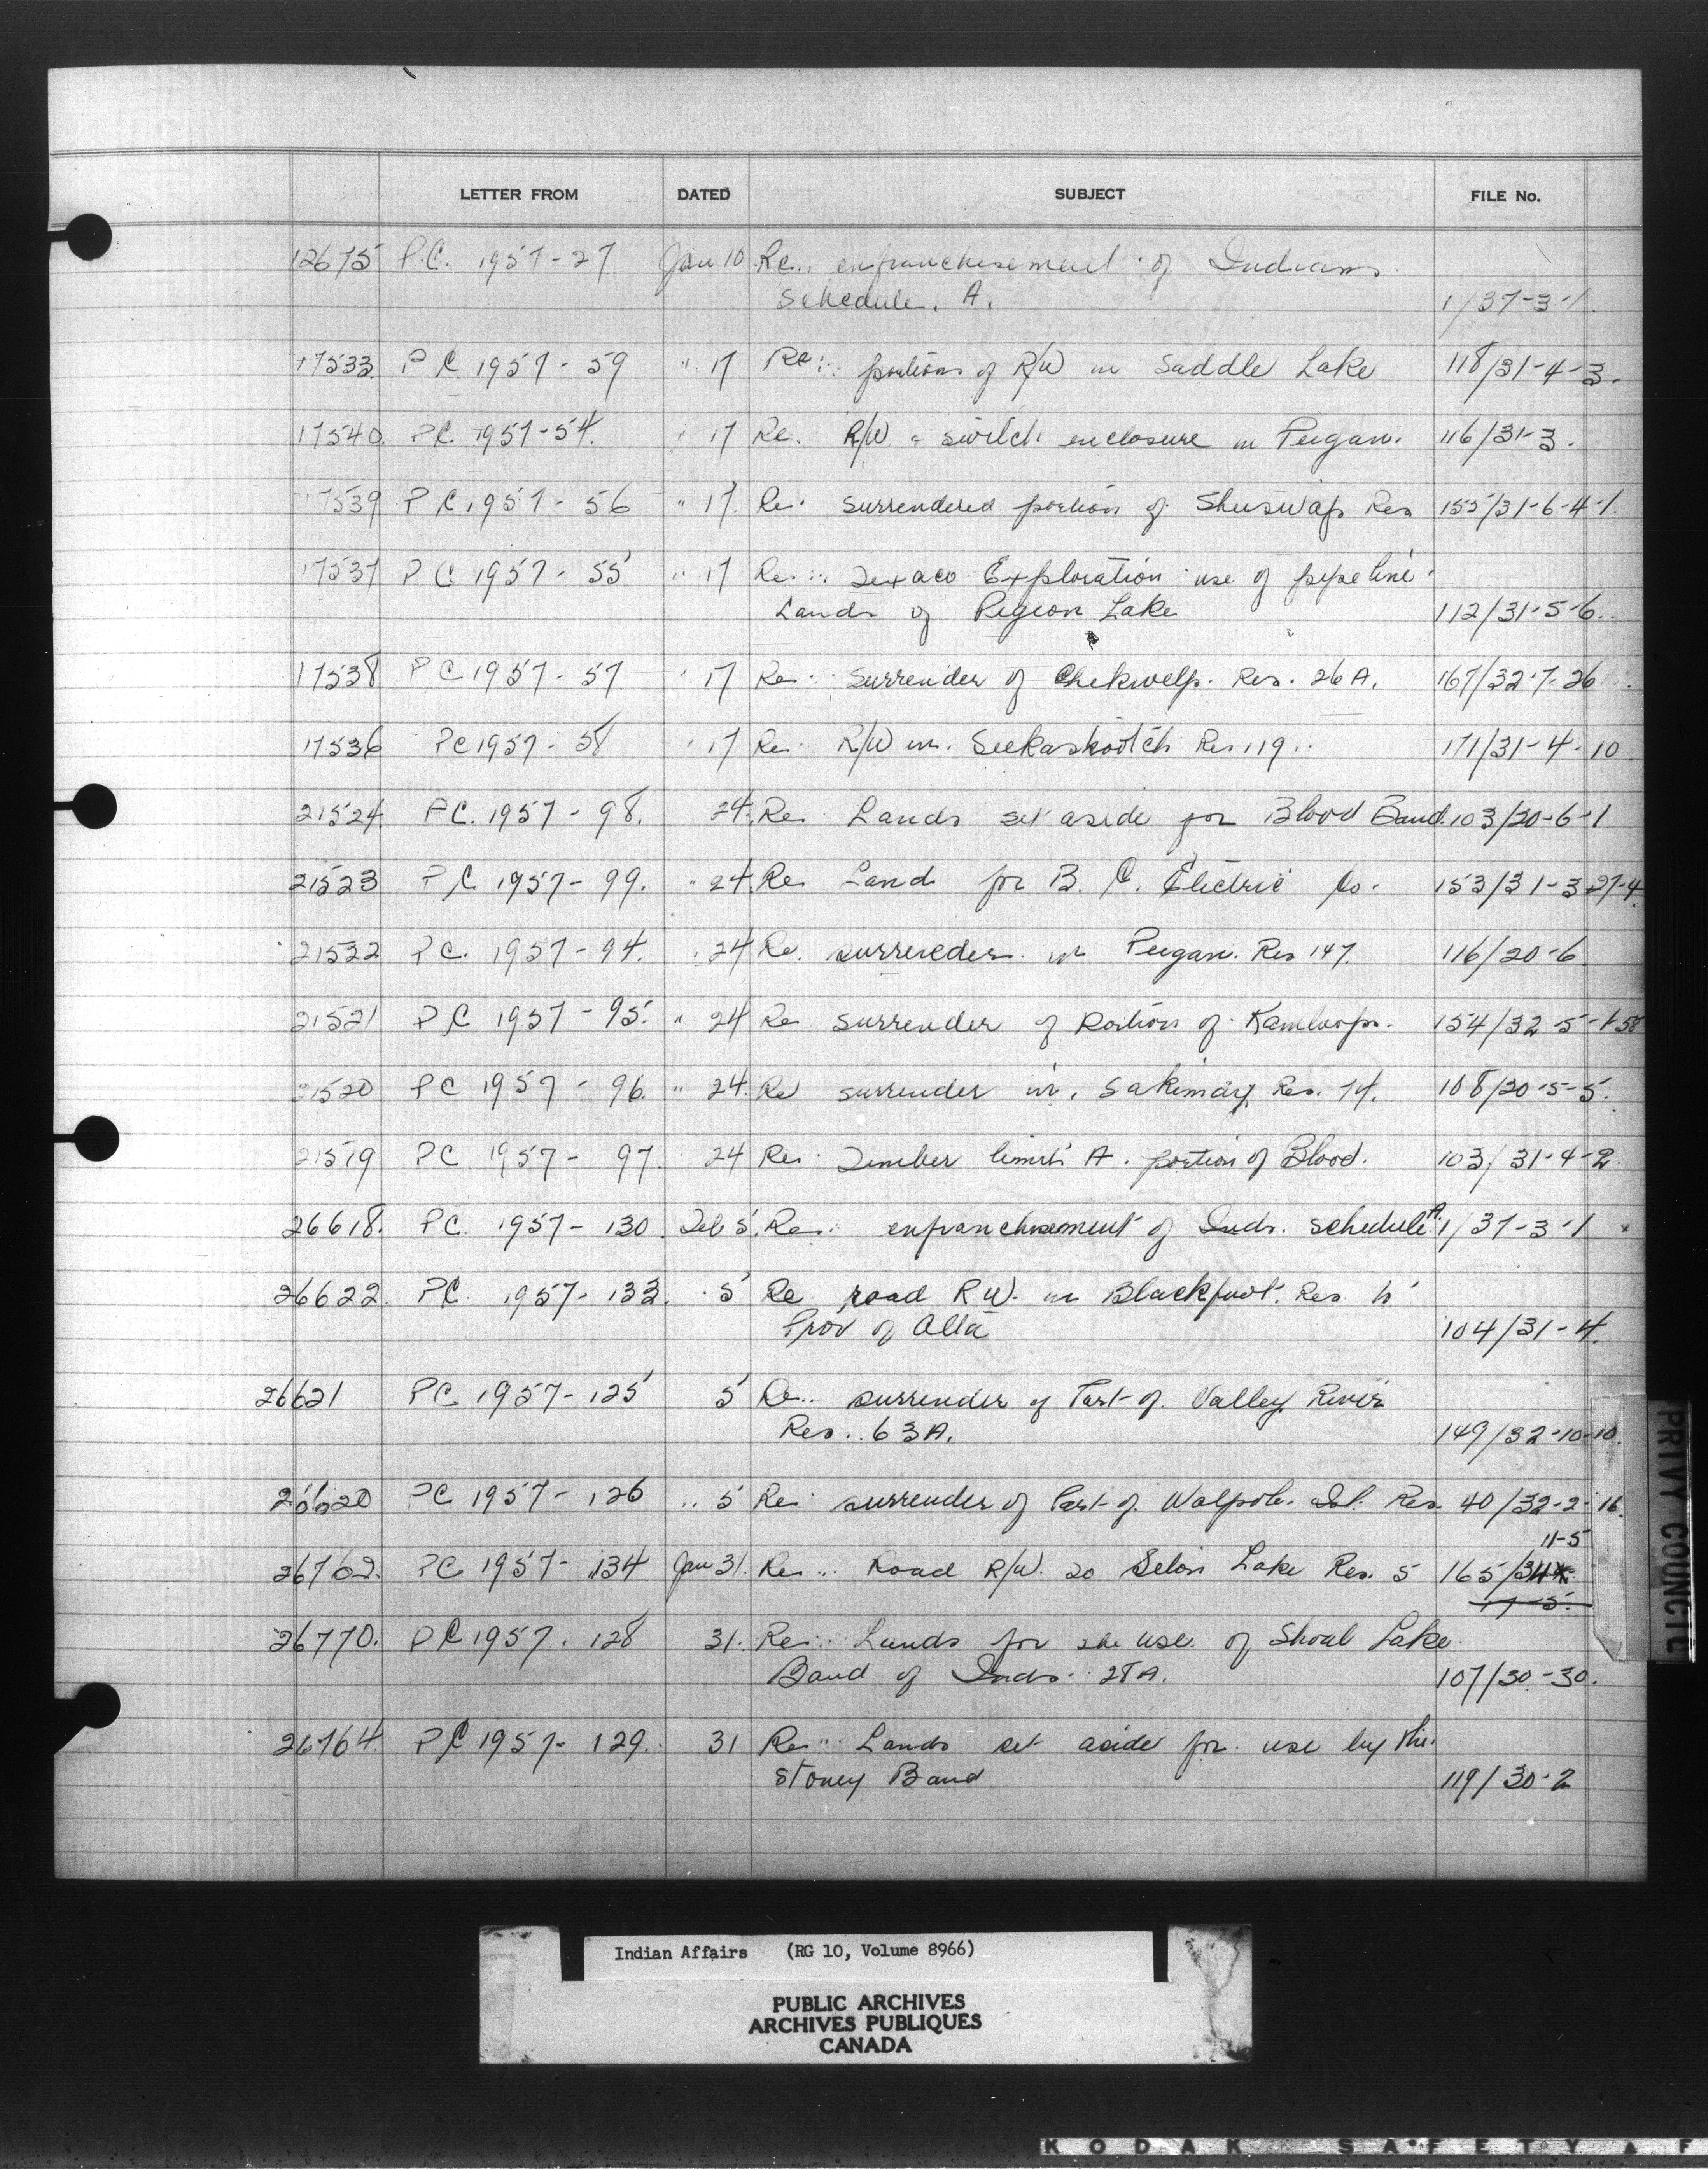 LETTER FROM DATED SUBJECT FILE No.
12675 P.C. 1957-27 Jan 10 Re.. enfranchisement of Indians
Schedule. A. 1/37-3-1
17533 P C 1957-59 " 17 Re: portions of R/W in Saddle Lake 118/31-4-3.
17540 P.C. 1957-54. " 17 Re. R/W & switch enclosure in Peigan. 116/31-3.
17539 P C 1957-56 " 17. Re: surrendered portion of Shuswap Res 155/31-6-4-1.
17537 P C 1957-55 " 17 Re.. Texaco Exploration use of pipe line
Lands of Pigeon Lake 112/31-5-6.
17538 P C 1957-57 " 17 Re: Surrender of Chekwelp. Res. 26A. 167/32-7-26
17536 PC 1957-58 " 17 Re: R/W in. Seekaskootch Res 119.. 171/31-4-10
21524 P.C. 1957-98. 24. Re Lands set aside for Blood Band. 103/20-6-1
21523 P C 1957-99. " 24. Re Land for B. C. Electric Co. 153/31-3-27-4
21522 P C. 1957-94. " 24 Re. surrender in Peigan. Res 147. 116/20-6
21521 P C 1957-95. " 24 Re surrender of Portion of Kamloops. 154/32-5-1-58
21520 P C 1957-96. " 24. Re surrender in. Sakimay Res. 74. 108/20-5-5.
21519 PC 1957-97. 24 Re: Timber limit A. portion of Blood. 103/31-4-2.
26618. P.C. 1957-130. Feb 5. Re.. enfranchisement of Inds. schedule A. 1/37-3-1
26622. P.C. 1957-133. " 5 Re road R W. in Blackfoot. Res to
Prov of Alta 104/31-4.
26621 PC 1957-125 5 Re.. surrender of Part of. Valley River
Res.. 63A. 149/32-10-10.
26620 PC 1957-126 .. 5 Re: surrender of Part of. Walpole. Isl. Res. 40/32-2-16.
11-5
26762. PC 1957-134 Jan 31. Re... Road R/W. 20 Lake Res. 5 165/31
26770. P C 1957. 128 31. Re... Lands for the use of Shoal Lake
Band of Inds.. 28A. 107/30-30.
26764. P C 1957-129. 31 Re... Lands set aside for use by the
Stoney Band 119/30-2
PRIVY COUNCIL
Indian Affairs (RG 10, Volume 8966)
PUBLIC ARCHIVES
ARCHIVES PUBLIQUES
CANADA
KODAK SAFETY F